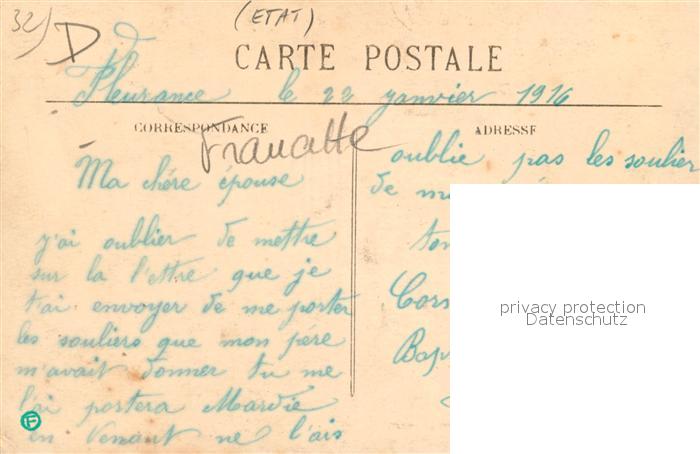 32)
D
(ETAT)
CARTE POSTALE
Fleurance le 22 janvier 1916
CORRESPONDANCE
ADRESSE
Francette
Ma chére épouse
j'ai oublier de mettre
sur la l'ettre que je
t'ai envoyer de me porter
les souliers que mon pére
m'avait donner tu me
l'ai portera Mardie
en Venant ne l'ais
oublie pas les soulier
de
ton
privacy protection
Datenschutz